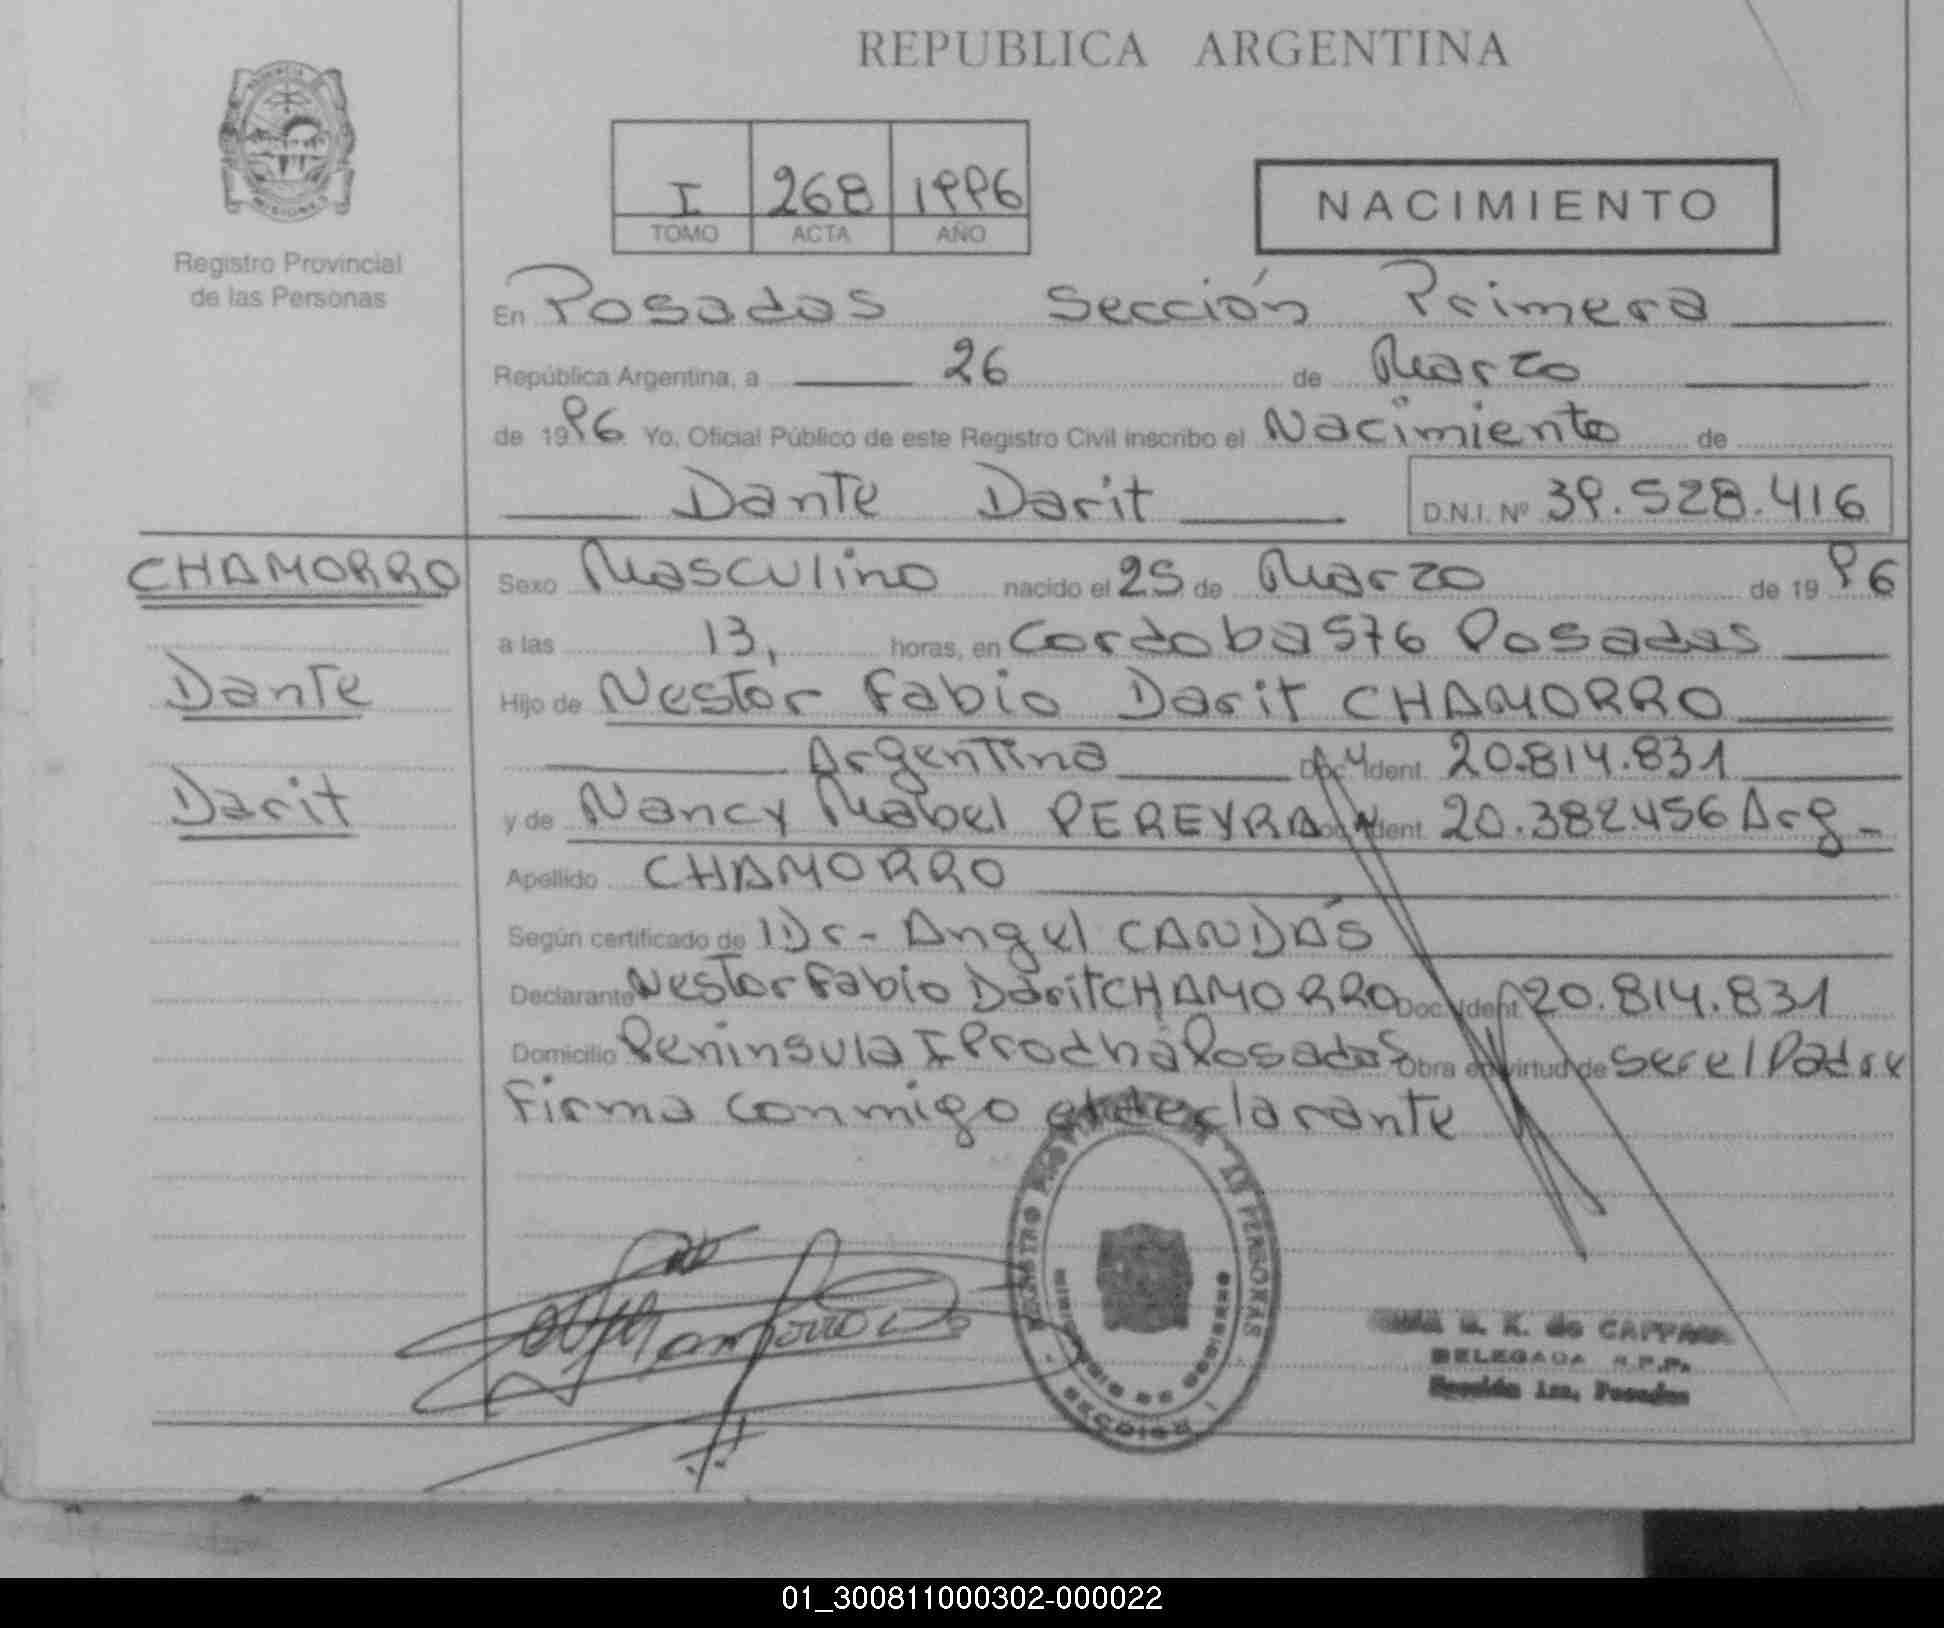 REPUBLICA ARGENTINA
I 268 1996
TOMO ACTA AÑO
NACIMIENTO
MISIONES
Registro Provincial
de las Personas
En Posadas Sección Primera
República Argentina, a 26 de Marzo
de 1996 Yo, Oficial Público de este Registro Civil inscribo el Nacimiento de
Dante Darit D.N.I. Nº 39.528.416
CHAMORRO
Dante
Darit
Sexo Masculino nacido el 25 de Marzo de 1996
a las 13, horas, en Cordoba 576 Posadas
Hijo de Nestor Fabio Darit CHAMORRO
Argentina Doc. Ident. 20.814.831
y de Nancy Mabel PEREYRA Doc. Ident. 20.382.456 Arg-
Apellido CHAMORRO
Según certificado de Dr- Angel CANDÁS
Declarante Nestor Fabio Darit CHAMORRO Doc. Ident. 20.814.831
Domicilio Peninsula I Prodha Posadas Obra en virtud de ser el Padre
Firma conmigo el declarante
REGISTRO DE LAS PERSONAS
MINISTERIO DE GOBIERNO
SECCION
K. de
DELEGADA R.P.P.
Sección 1ra. Posadas
01_300811000302-000022